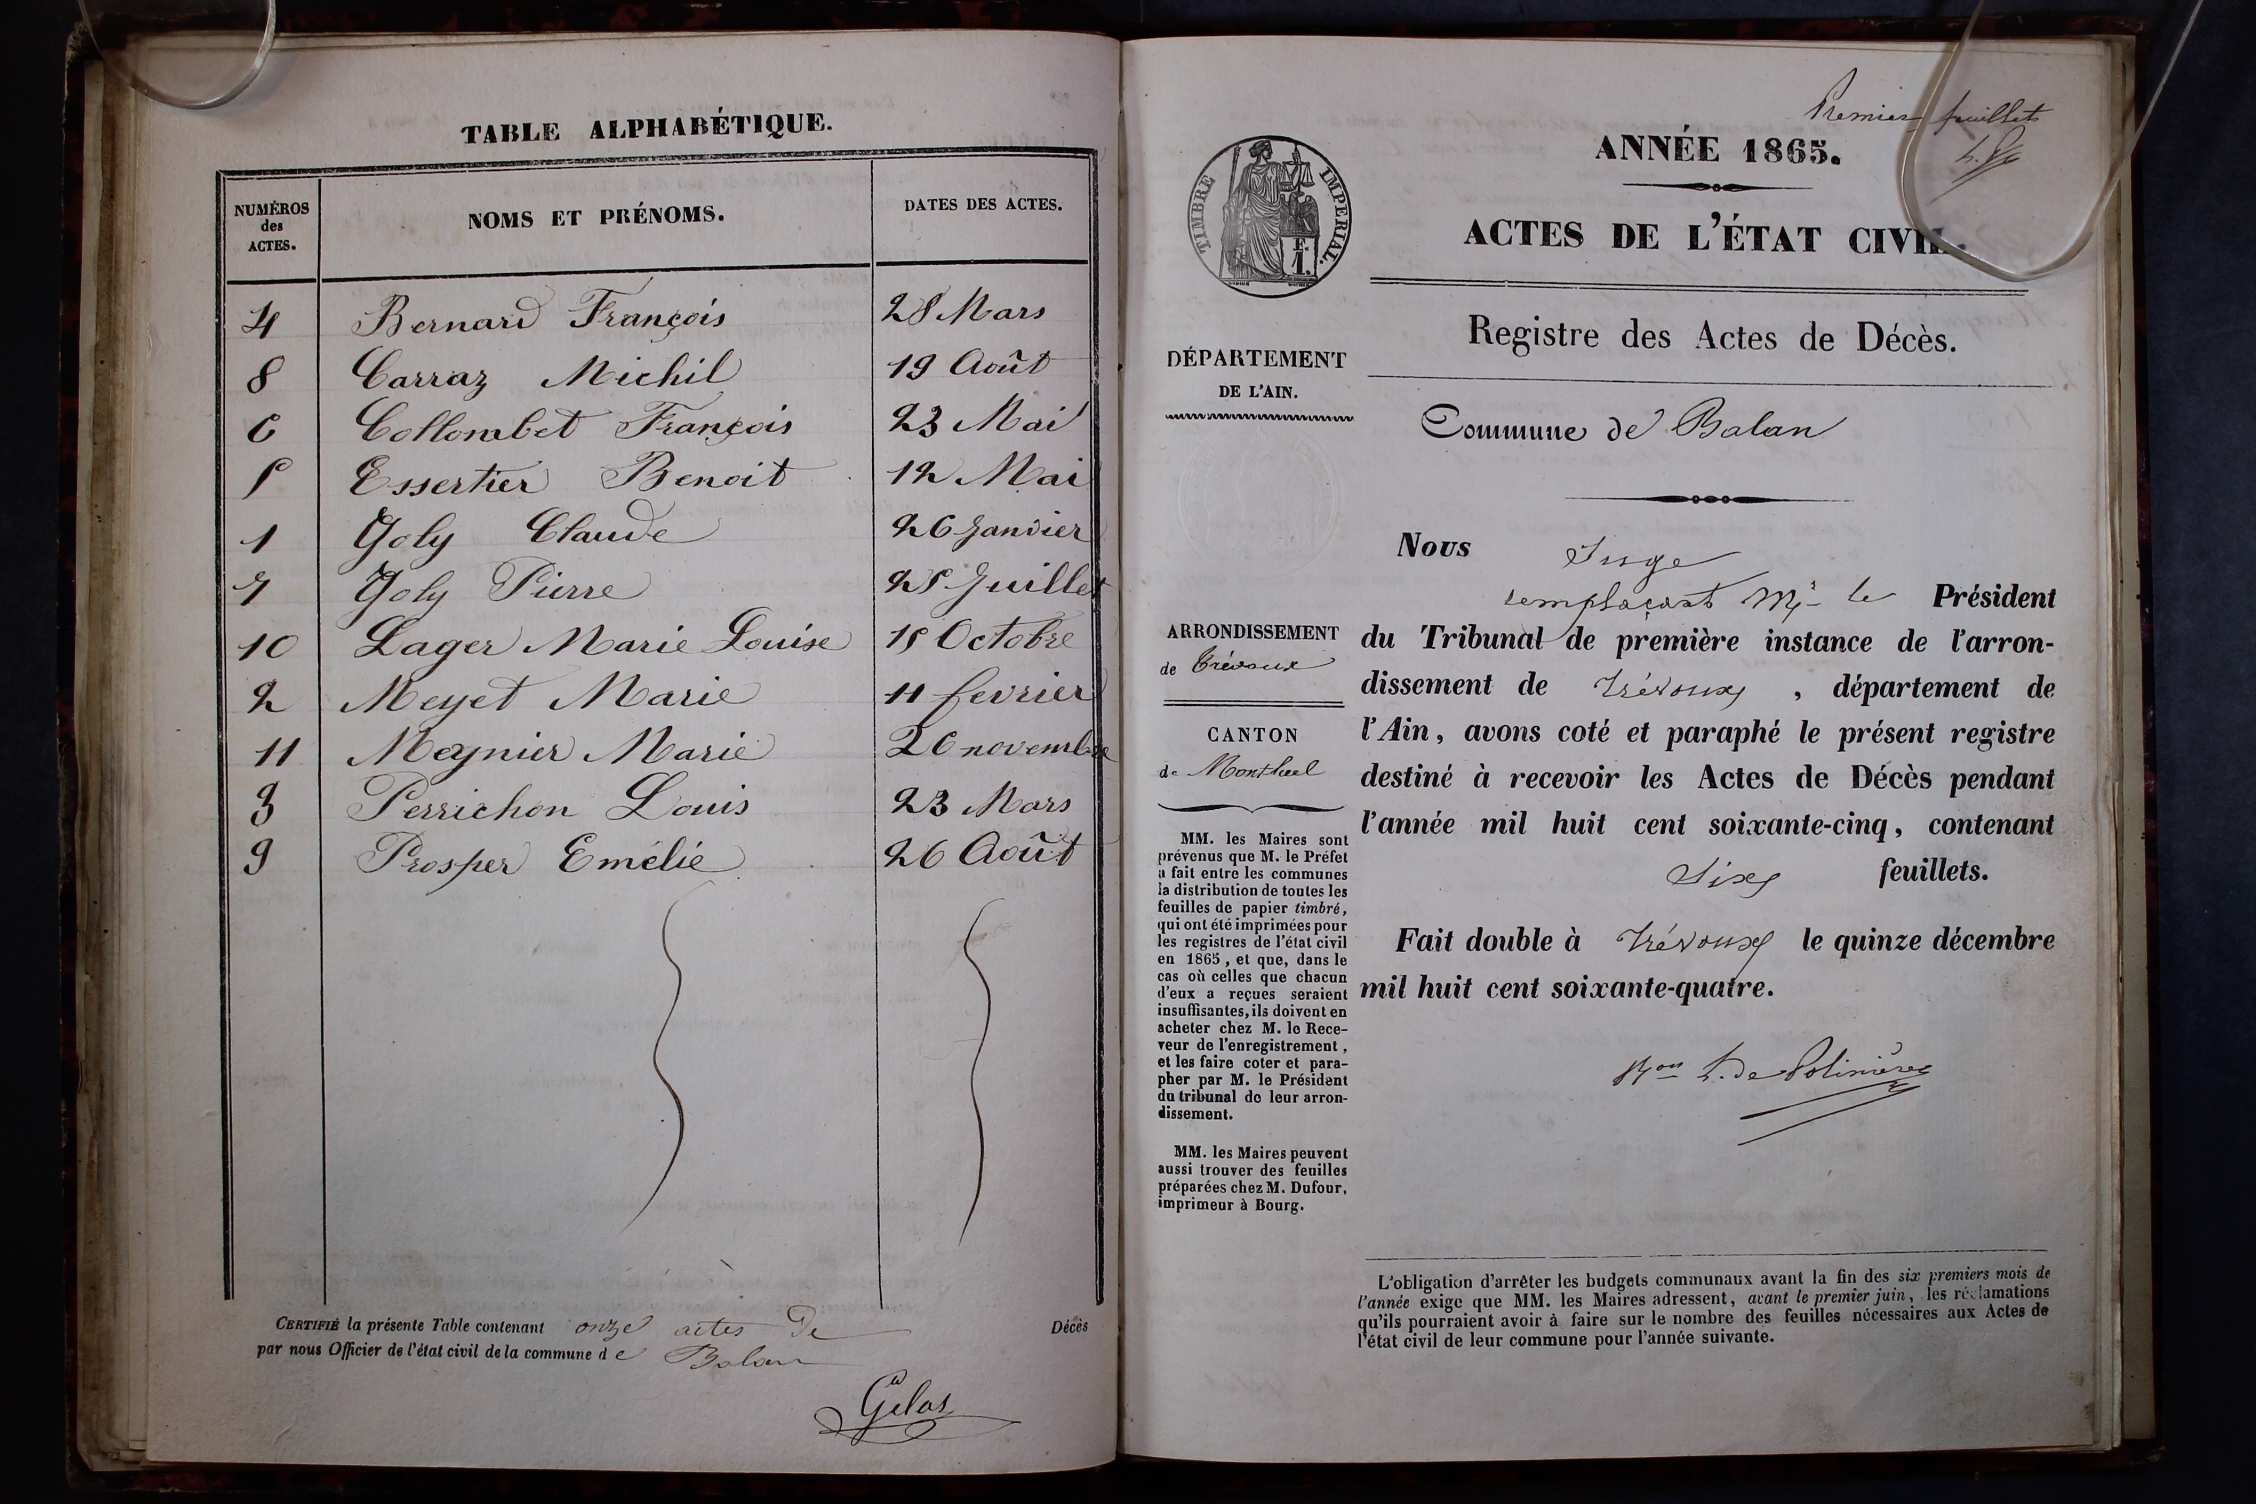 TABLE ALPHABÉTIQUE.
NUMÉROS des ACTES. NOMS ET PRÉNOMS. DATES DES ACTES.
4 Bernard François 28 Mars
8 Carraz Michil 19 Août
6 Collombet François 23 Mai
5 Essertier Benoit 12 Mai
1 Joly Claude 26 Janvier
7 Joly Pierre 25 Juillet
10 Lager Marie Louise 15 Octobre
2 Meyet Marie 11 fevrier
11 Meynier Marie 26 novembre
3 Perrichon Louis 23 Mars
9 Prosper Emélie 26 Août
CERTIFIÉ la présente Table contenant onze actes de Décès
par nous Officier de l'état civil de la commune de Balan
Gelas
Premier feuillet
ANNÉE 1865.
TIMBRE IMPERIAL.
F.
1.
ACTES DE L'ÉTAT CIVIL.
Registre des Actes de Décès.
DÉPARTEMENT
DE L'AIN.
Commune de Balan
ARRONDISSEMENT
de Trévoux
CANTON
de Montluel
MM. les Maires sont
prévenus que M. le Préfet
a fait entre les communes
la distribution de toutes les
feuilles de papier timbré,
qui ont été imprimées pour
les registres de l'état civil
en 1865, et que, dans le
cas où celles que chacun
d'eux a reçues seraient
insuffisantes, ils doivent en
acheter chez M. le Rece-
veur de l'enregistrement,
et les faire coter et para-
pher par M. le Président
du tribunal de leur arron-
dissement.
MM. les Maires peuvent
aussi trouver des feuilles
préparées chez M. Dufour,
imprimeur à Bourg.
Nous Juge
remplaçant Mr le Président
du Tribunal de première instance de l'arron-
dissement de Trévoux, département de
l'Ain, avons coté et paraphé le présent registre
destiné à recevoir les Actes de Décès pendant
l'année mil huit cent soixante-cinq, contenant
Six feuillets.
Fait double à Trévoux le quinze décembre
mil huit cent soixante-quatre.
Bon L. de Polinière
L'obligation d'arrêter les budgets communaux avant la fin des six premiers mois de
l'année exige que MM. les Maires adressent, avant le premier juin, les réclamations
qu'ils pourraient avoir à faire sur le nombre des feuilles nécessaires aux Actes de
l'état civil de leur commune pour l'année suivante.